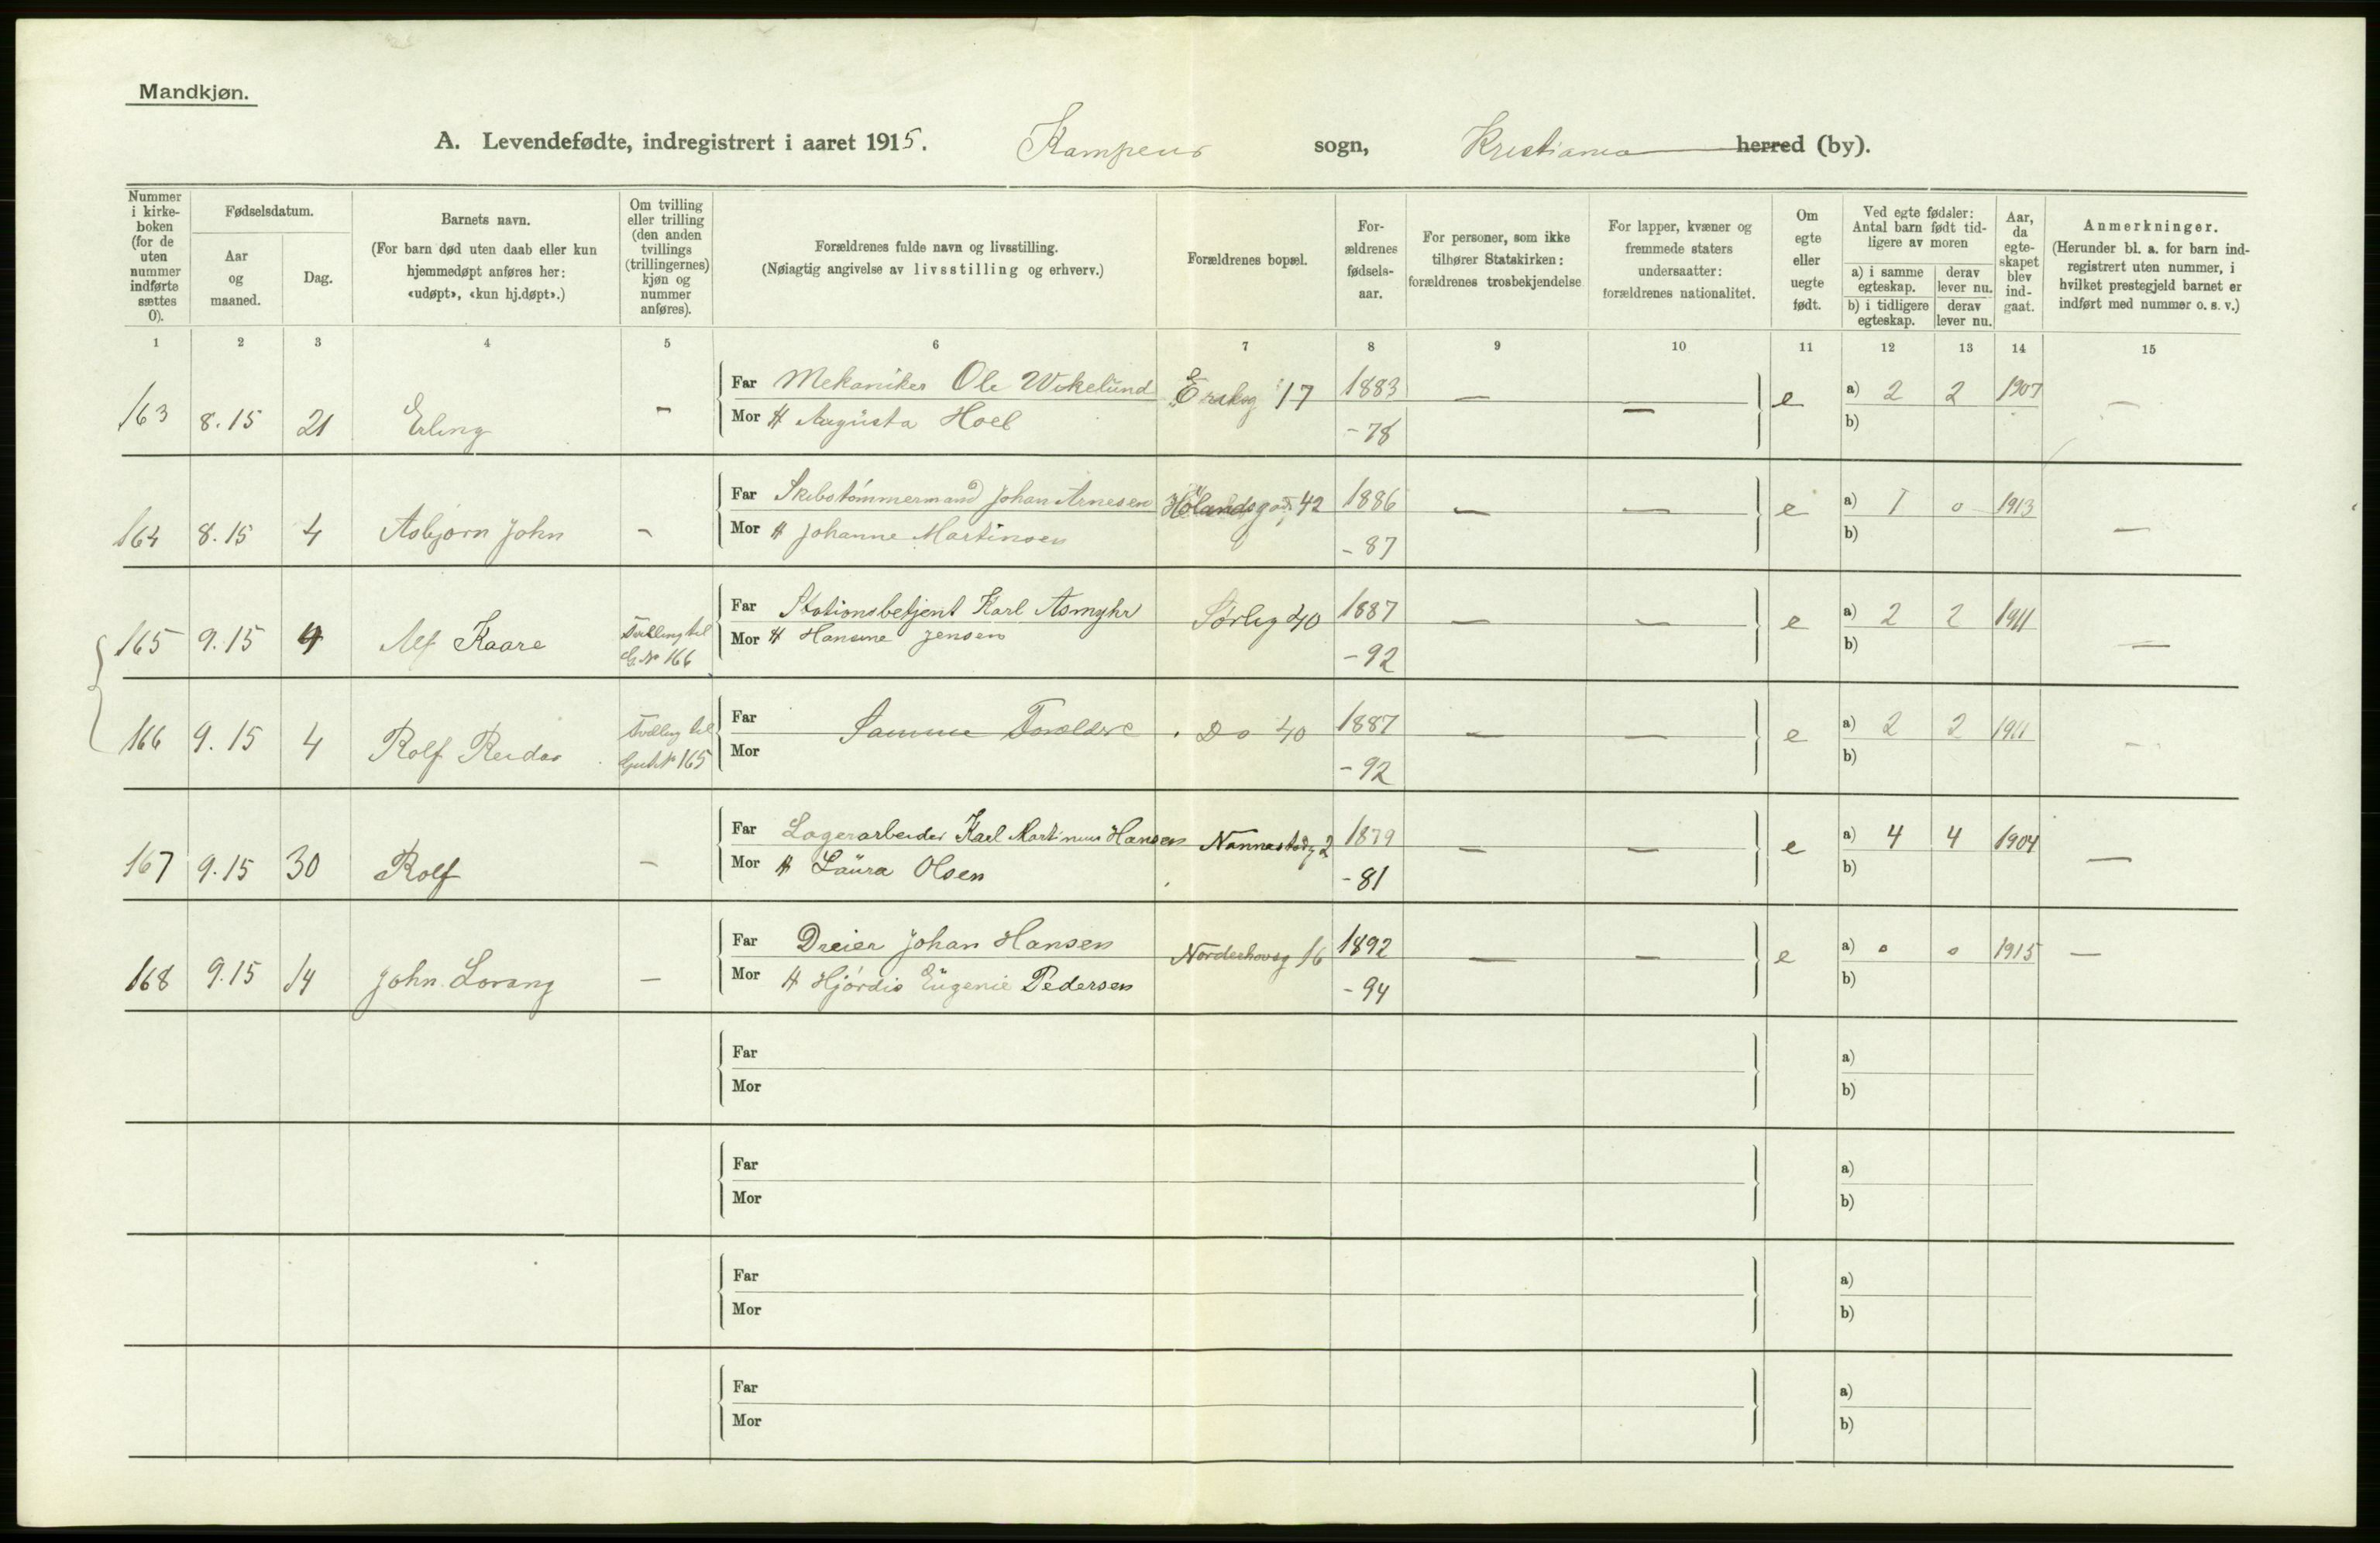 Mandkjøn.
A. Levendefødte, indregistrert i aaret 1915. Kampens sogn, Kristiania herred (by).
Nummer i kirkeboken (for de uten nummer indførte sættes 0).
Fødselsdatum.
Aar og maaned.
Dag.
Barnets navn.
(For barn død uten daab eller kun hjemmedøpt anføres her: «udøpt», «kun hj.døpt».)
Om tvilling eller trilling (den anden tvillings (trillingernes) kjøn og nummer anføres).
Forældrenes fulde navn og livsstilling.
(Nøiagtig angivelse av livsstilling og erhverv.)
Forældrenes bopæl.
For-ældrenes fødsels-aar.
For personer, som ikke tilhører Statskirken: forældrenes trosbekjendelse
For lapper, kvæner og fremmede staters undersaatter: forældrenes nationalitet.
Om egte eller uegte født.
Ved egte fødsler: Antal barn født tidligere av moren
a) i samme egteskap.
derav lever nu.
b) i tidligere egteskap.
derav lever nu.
Aar, da egte-skapet blev ind-gaat.
Anmerkninger.
(Herunder bl. a. for barn indregistrert uten nummer, i hvilket prestegjeld barnet er indført med nummer o. s. v.)
1 2 3 4 5 6 7 8 9 10 11 12 13 14 15
163 8.15 21 Erling - Far Mekaniker Ole Wikelund 17 1883 — — e a) 2 2 1907 —
Mor H Augusta Hoel -78 b)
164 8.15 4 Asbjørn John - Far Skibstømmermand Johan Arnesen Hølandsgd. 42 1886 — — e a) 1 0 1913 —
Mor H Johanne Martinsen -87 b)
165 9.15 4 Alf Kaare Tvilling til G. No 166 Far Stationsbetjent Karl Asmyhr Sørlig 40 1887 — — e a) 2 2 1911 —
Mor H Hansine Jensen -92 b)
166 9.15 4 Rolf Reidar Tvilling til Gut No 165 Far Samme Forældre Do 40 1887 — — e a) 2 2 1911 —
Mor -92 b)
167 9.15 30 Rolf - Far Lagerarbeider Karl Martinius Hansen Nannestadg 2 1879 — — e a) 4 4 1904 —
Mor H Laura Olsen -81 b)
168 9.15 14 John Lorang - Far Dreier Johan Hansen Norderhovsg 16 1892 — — e a) 0 0 1915 —
Mor H Hjørdis Eugenie Pedersen -94 b)
Far a)
Mor b)
Far a)
Mor b)
Far a)
Mor b)
Far a)
Mor b)